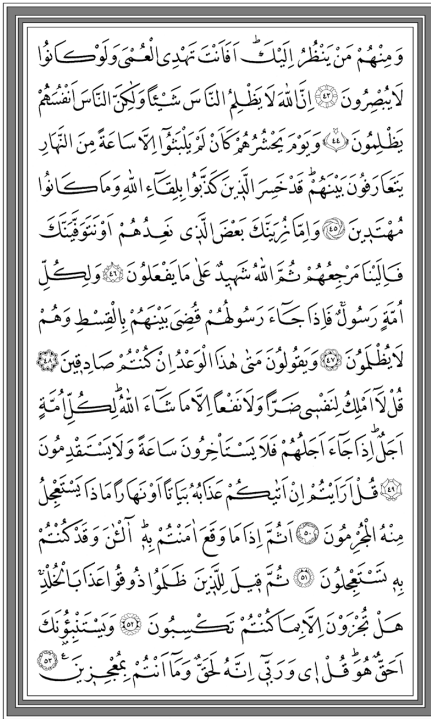 وَمِنْهُمْ مَنْ يَنْظُرُ اِلَيْكَۜ اَفَاَنْتَ تَهْدِي الْعُمْيَ وَلَوْ كَانُوا
لَا يُبْصِرُونَ ﴿٤٣﴾ اِنَّ اللّٰهَ لَا يَظْلِمُ النَّاسَ شَيْـًٔا وَلٰكِنَّ النَّاسَ اَنْفُسَهُمْ
يَظْلِمُونَ ﴿٤٤﴾ وَيَوْمَ يَحْشُرُهُمْ كَاَنْ لَمْ يَلْبَثُٓوا اِلَّا سَاعَةً مِنَ النَّهَارِ
يَتَعَارَفُونَ بَيْنَهُمْۜ قَدْ خَسِرَ الَّذ۪ينَ كَذَّبُوا بِلِقَٓاءِ اللّٰهِ وَمَا كَانُوا
مُهْتَد۪ينَ ﴿٤٥﴾ وَاِمَّا نُرِيَنَّكَ بَعْضَ الَّذ۪ي نَعِدُهُمْ اَوْ نَتَوَفَّيَنَّكَ
فَاِلَيْنَا مَرْجِعُهُمْ ثُمَّ اللّٰهُ شَه۪يدٌ عَلٰى مَا يَفْعَلُونَ ﴿٤٦﴾ وَلِكُلِّ
اُمَّةٍ رَسُولٌۚ فَاِذَا جَٓاءَ رَسُولُهُمْ قُضِيَ بَيْنَهُمْ بِالْقِسْطِ وَهُمْ
لَا يُظْلَمُونَ ﴿٤٧﴾ وَيَقُولُونَ مَتٰى هٰذَا الْوَعْدُ اِنْ كُنْتُمْ صَادِق۪ينَ ﴿٤٨﴾
قُلْ لَٓا اَمْلِكُ لِنَفْس۪ي ضَرًّا وَلَا نَفْعًا اِلَّا مَا شَٓاءَ اللّٰهُۜ لِكُلِّ اُمَّةٍ
اَجَلٌۜ اِذَا جَٓاءَ اَجَلُهُمْ فَلَا يَسْتَأْخِرُونَ سَاعَةً وَلَا يَسْتَقْدِمُونَ
﴿٤٩﴾ قُلْ اَرَاَيْتُمْ اِنْ اَتٰيكُمْ عَذَابُهُ بَيَاتًا اَوْ نَهَارًا مَاذَا يَسْتَعْجِلُ
مِنْهُ الْمُجْرِمُونَ ﴿٥٠﴾ اَثُمَّ اِذَا مَا وَقَعَ اٰمَنْتُمْ بِه۪ۜ آٰلْـٰٔنَ وَقَدْ كُنْتُمْ
بِه۪ تَسْتَعْجِلُونَ ﴿٥١﴾ ثُمَّ ق۪يلَ لِلَّذ۪ينَ ظَلَمُوا ذُوقُوا عَذَابَ الْخُلْدِۚ
هَلْ تُجْزَوْنَ اِلَّا بِمَا كُنْتُمْ تَكْسِبُونَ ﴿٥٢﴾ وَيَسْتَنْبِؤُ۫نَكَ
اَحَقٌّ هُوَۜ قُلْ ا۪ي وَرَبّ۪ٓي اِنَّهُ لَحَقٌّۚ وَمَٓا اَنْتُمْ بِمُعْجِز۪ينَ۟ ﴿٥٣﴾